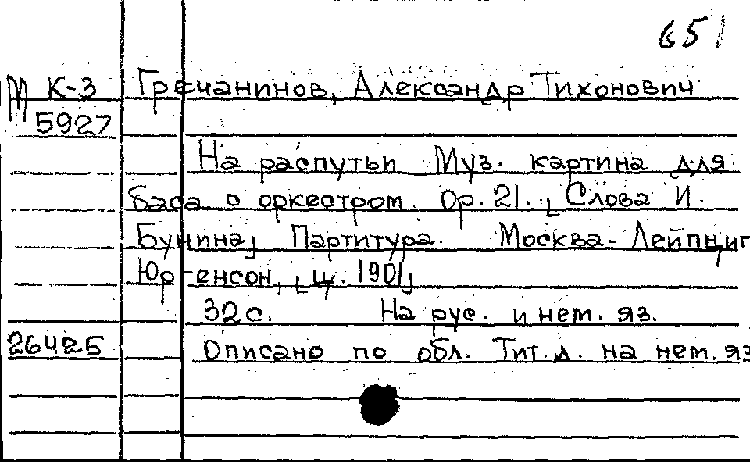 651
М К-3 Гречанинов, Александр Тихонович
5927
На распутьи Муз. картина для
баса с оркестром. Ор. 21. [Слова И.
Бунина] Партитура. Москва-Лейпциг
Юргенсон, [ц. 1901]
32 с. На рус. и нем. яз.
26425 Описано по обл. Тит. л. на нем. яз